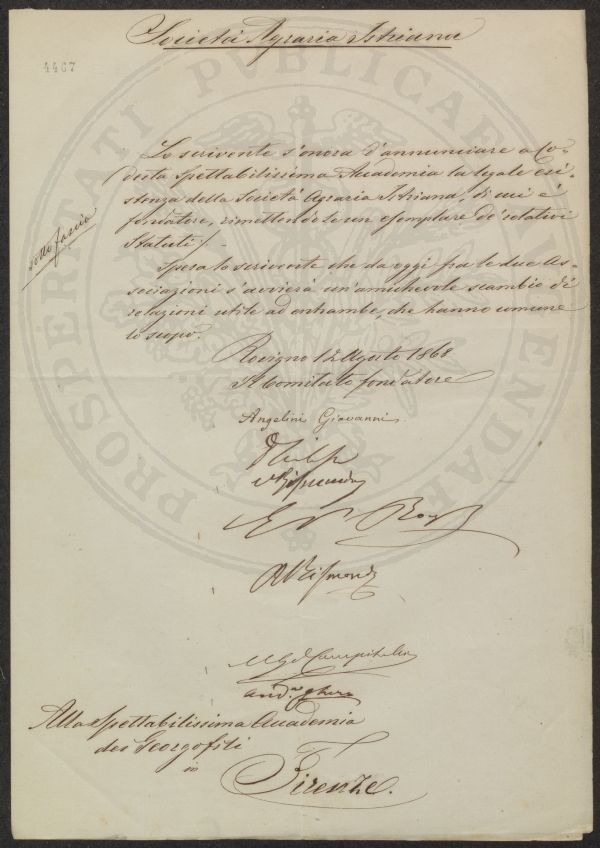 Società Agraria Istriana
4467
PROSPERITATI PUBLICAE AUGENDAE
Lo scrivente s'onora d'annunciare a Co-
desta Spettabilissima Accademia la legale esi-
stenza della Società Agraria Istriana, di cui è
fondatore, rimettendole un esemplare de' relativi
Statuti.
sotto fascia
Spera lo scrivente che da oggi fra le due As-
sociazioni s'avvierà un'amichevole scambio di
relazioni utile ad entrambe, che hanno comune
lo scopo.
Rovigno 12 Agosto 1868
Il Comitato fondatore
Angelini Giovanni
Campitelli
Alla Spettabilissima Accademia
dei Georgofili
in
Firenze.